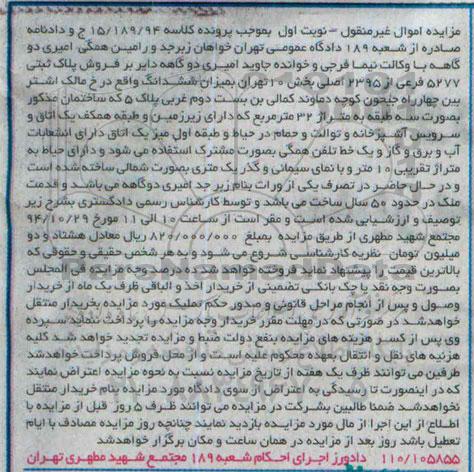 مزایده اموال غیرمنقول - نوبت اول بموجب پرونده کلاسه ۱۵/۱۸۹/۹۴ ج و دادنامه
صادره از شعبه ۱۸۹ دادگاه عمومی تهران خواهان زبرجد و رامین همگی امیری دو
گاهه با وکالت نیما فرجی و خوانده جاوید امیری دو گاهه دایر بر فروش پلاک ثبتی
۵۲۷۷ فرعی از ۲۳۹۵ اصلی بخش ۱۰ تهران بمیزان ششدانگ واقع در خ مالک اشتر
بین چهارراه جیحون کوچه دماوند کمالی بن بست دوم غربی پلاک ۵ که ساختمان مذکور
بصورت سه طبقه به متراژ ۳۲ مترمربع که دارای زیرزمین و طبقه همکف یک اتاق و
سرویس آشپزخانه و توالت و حمام در حیاط و طبقه اول میز یک اتاق دارای انشعابات
آب و برق و گاز و یک خط تلفن همگی بصورت مشترک استفاده می شود و دارای حیاط به
متراژ تقریبی ۱۰ متر و با نمای سیمانی و گذر یک متری بصورت شمالی ساخته شده است
و در حال حاضر در تصرف یکی از وراث بنام زبر جد امیری دوگاهه می باشد و قدمت
ملک در حدود ۵۰ سال ساخت می باشد و توسط کارشناس رسمی دادگستری بشرح زیر
توصیف و ارزشیابی شده است و مقر است از ساعت ۱۰ الی ۱۱ مورخ ۹۴/۱۰/۲۹
مجتمع شهید مطهری از طریق مزایده بمبلغ ۸۲۰/۰۰۰/۰۰۰ ریال معادل هشتاد و دو
میلیون تومان نظریه کارشناسی شروع می شود و به هر شخص حقیقی و حقوقی که
بالاترین قیمت را پیشنهاد نماید فروخته خواهد شد ده درصد وجه مزایده فی المجلس
بصورت وجه نقد یا چک بانکی تضمینی از خریدار اخذ و الباقی ظرف یک ماه از خریدار
وصول و پس از انجام مراحل قانونی و صدور حکم تملیک مورد مزایده بخریدار منتقل
خواهدشد در صورتی که در مهلت مقرر خریدار وجه مزایده را پرداخت ننماید سپرده
وی پس از کسر هزینه های مزایده بنفع دولت ضبط و مزایده تجدید خواهد شد کلیه
هزینه های نقل و انتقال بعهده محکوم علیه است و از محل فروش پرداخت خواهدشد
طرفین می توانند ظرف یک هفته از تاریخ مزایده نسبت به نحوه مزایده اعتراض نمایند
که در اینصورت تا رسیدگی به اعتراض از سوی دادگاه مورد مزایده بنام خریدار منتقل
نخواهدشد ضمنا طالبین بشرکت در مزایده می توانند ظرف ۵ روز قبل از مزایده با
اطلاع از این اجرا از مال مورد مزایده بازدید نمایند چنانچه روز مزایده مصادف با ایام
تعطیل باشد روز بعد از مزایده در همان ساعت و مکان برگزار خواهدشد
۱۱۰/۱۰۵۸۵۵ دادورز اجرای احکام شعبه ۱۸۹ مجتمع شهید مطهری تهران